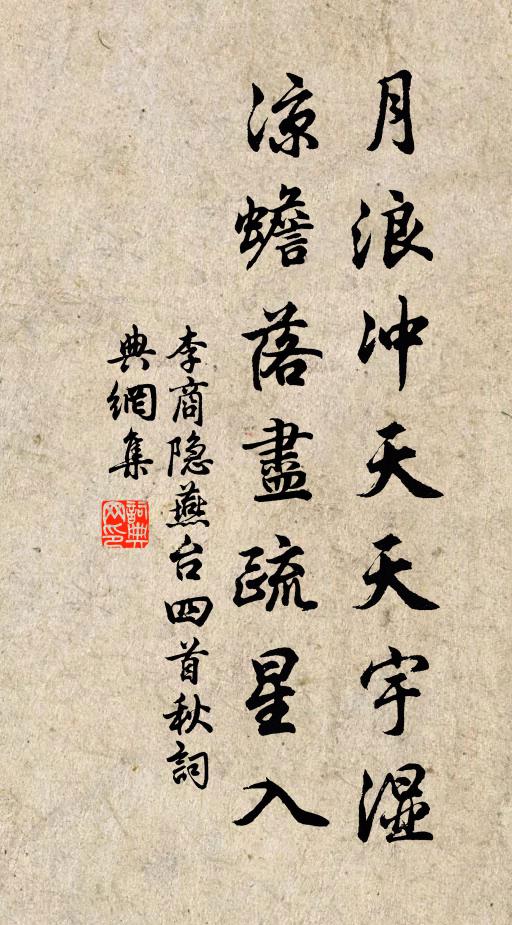 月浪冲天天宇湿
凉蟾落盡疏星入
李商隐燕台四首秋詞
典網集
詞典网印